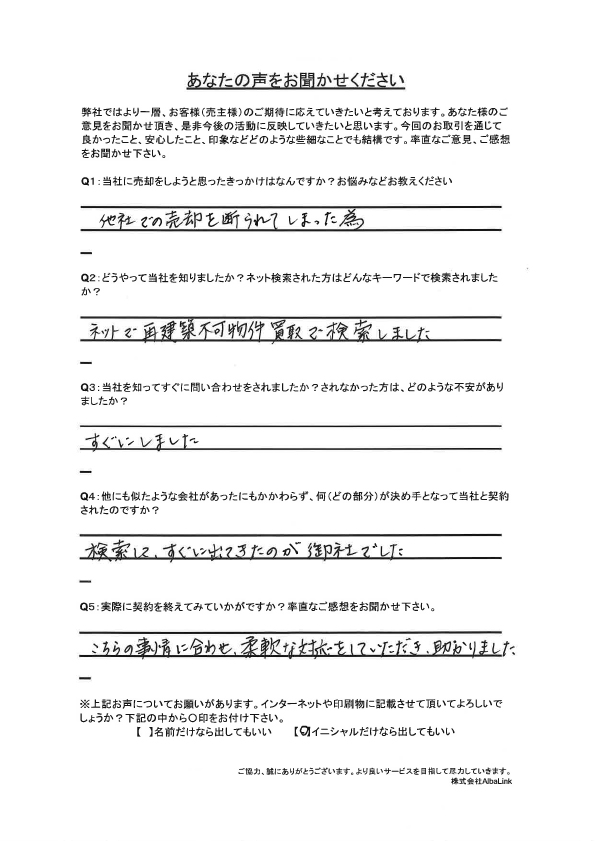 あなたの声をお聞かせください
弊社ではより一層、お客様(売主様)のご期待に応えていきたいと考えております。あなた様のご
意見をお聞かせ頂き、是非今後の活動に反映していきたいと思います。今回のお取引を通じて
良かったこと、安心したこと、印象などどのような些細なことでも結構です。率直なご意見、ご感想
をお聞かせ下さい。
Q1:当社に売却をしようと思ったきっかけはなんですか?お悩みなどお教えください
他社での売却を断られてしまった為
Q2:どうやって当社を知りましたか?ネット検索された方はどんなキーワードで検索されました
か?
ネットで再建築不可物件買取で検索しました
Q3:当社を知ってすぐに問い合わせをされましたか?されなかった方は、どのような不安があり
ましたか?
すぐにしました
Q4:他にも似たような会社があったにもかかわらず、何(どの部分)が決め手となって当社と契約
されたのですか?
検索して、すぐに出てきたのが御社でした
Q5:実際に契約を終えてみていかがですか?率直なご感想をお聞かせ下さい。
こちらの事情に合わせ、柔軟な対応をしていただき、助かりました
※上記お声についてお願いがあります。インターネットや印刷物に記載させて頂いてよろしいで
しょうか?下記の中から○印をお付け下さい。
【 】名前だけなら出してもいい 【○】イニシャルだけなら出してもいい
ご協力、誠にありがとうございます。より良いサービスを目指して尽力していきます。
株式会社AlbaLink